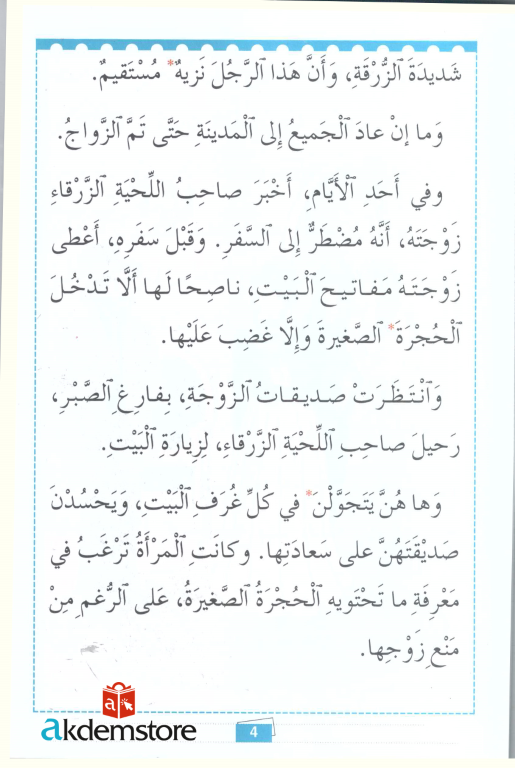 شَديدَةَ ٱلزُّرْقَةِ، وَأَنَّ هَذا ٱلرَّجُلَ نَزيهٌ* مُسْتَقيمٌ.
وَما إنْ عادَ ٱلْجَميعُ إلى ٱلْمَدينَةِ حَتَّى تَمَّ ٱلزَّواجُ.
وفي أَحَدِ ٱلْأَيَّامِ، أَخْبَرَ صاحِبُ اللِّحْيَةِ ٱلزَّرْقاءِ
زَوْجَتَهُ، أَنَّهُ مُضْطَرٌّ إلى ٱلسَّفَرِ. وَقَبْلَ سَفَرِهِ، أَعْطى
زَوْجَتَهُ مَفاتيحَ ٱلْبَيْتِ، ناصِحًا لَها أَلَّا تَدْخُلَ
ٱلْحُجْرَةَ* ٱلصَّغيرةَ وَإلَّا غَضِبَ عَلَيْها.
وَٱنْتَظَرَتْ صَديقاتُ ٱلزَّوْجَةِ، بِفارِغِ ٱلصَّبْرِ،
رَحيلَ صاحِبِ ٱللِّحْيَةِ ٱلزَّرْقاءِ، لِزِيارَةِ ٱلْبَيْتِ.
وَها هُنَّ يَتَجَوَّلْنَ* في كُلِّ غُرَفِ ٱلْبَيْتِ، وَيَحْسُدْنَ
صَديقَتَهُنَّ على سَعادَتِها. وكانَتِ ٱلْمَرْأَةُ تَرْغَبُ في
مَعْرِفَةِ ما تَحْتَويهِ ٱلْحُجْرَةُ ٱلصَّغيرَةُ، عَلى ٱلرُّغمِ مِنْ
مَنْعِ زَوْجِها.
a
akdemstore
4